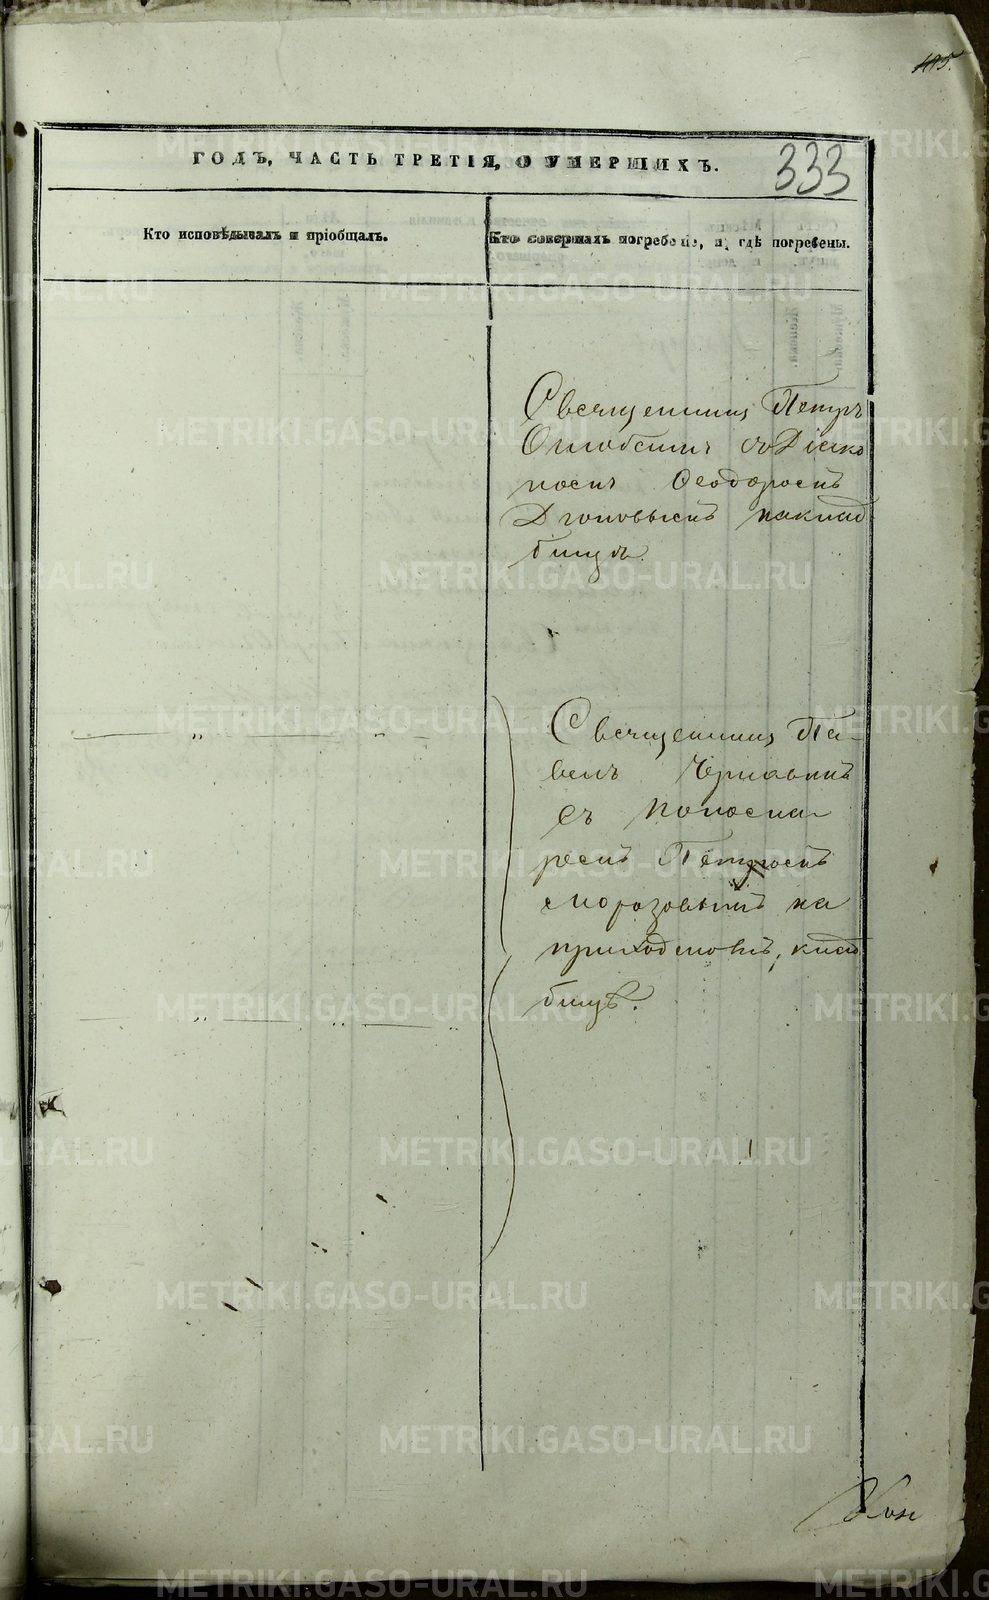 415.
ГОДЪ, ЧАСТЬ ТРЕТІЯ, О УМЕРШИХЪ.
333
Кто исповѣдывалъ и пріобщалъ.
Кто совершалъ погребеніе, и гдѣ погребены.
Священникъ Петръ
со Діако
номъ Ѳеодоромъ
на клад
бищѣ
Священникъ Па-
велъ Чернавинъ
съ Пономa-
ремъ Петромъ
Морозовымъ на
приходском, клад
бищѣ.
METRIKI.GASO-URAL.RU